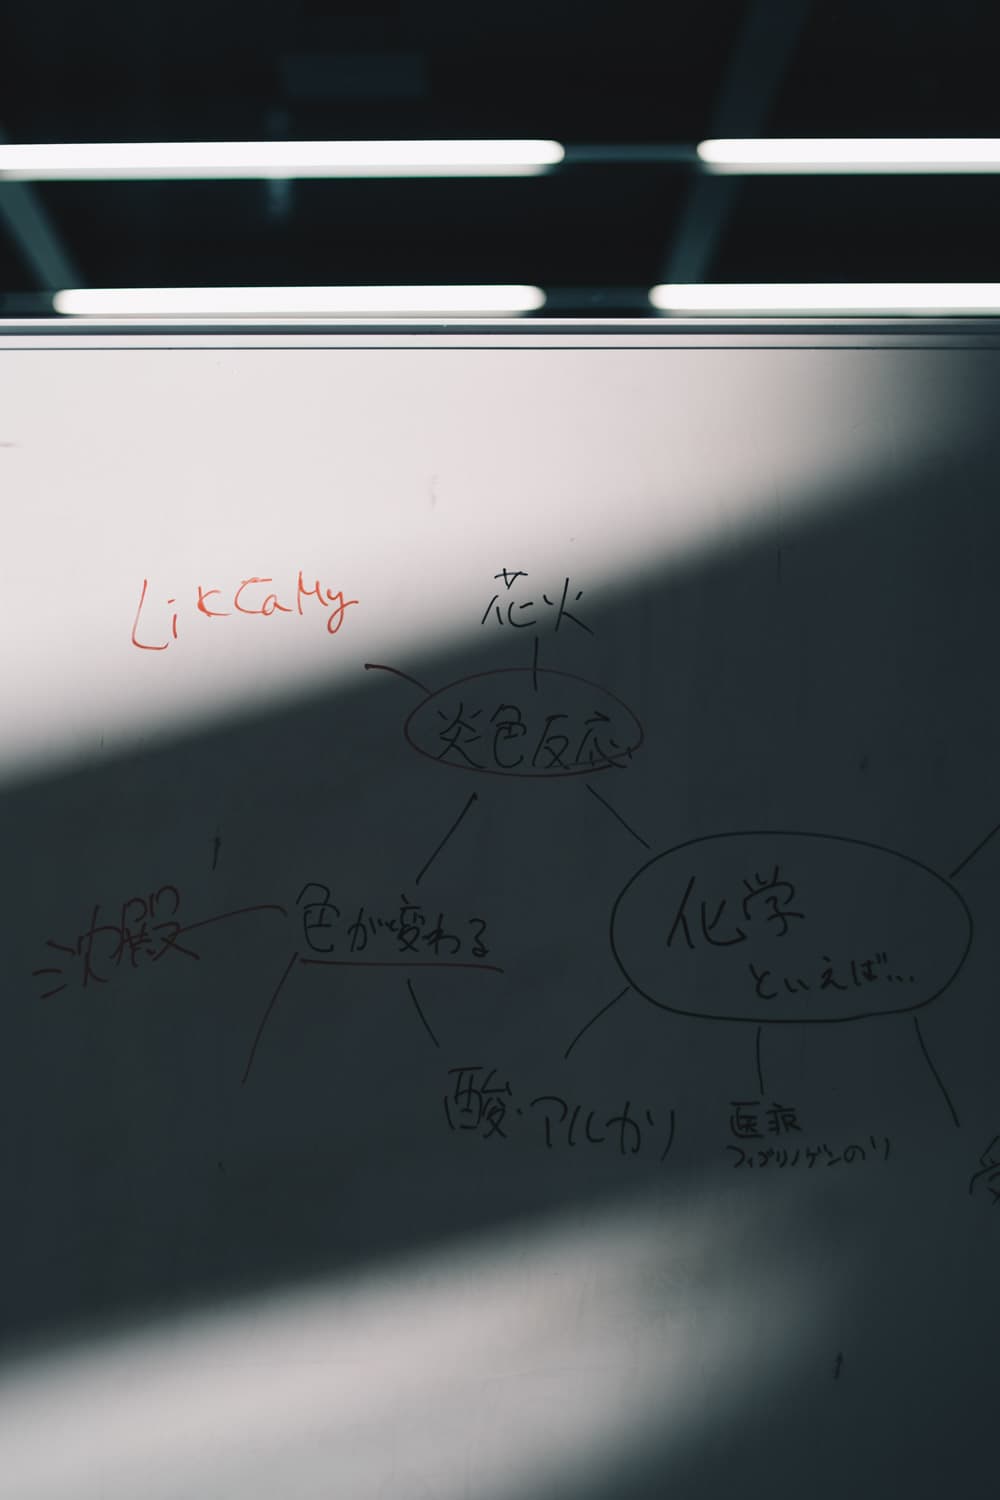 LiKCaMy
花火
炎色反応
色が変わる
沈殿
化学
といえば...
酸・アルカリ
医療
フィブリノゲンのり